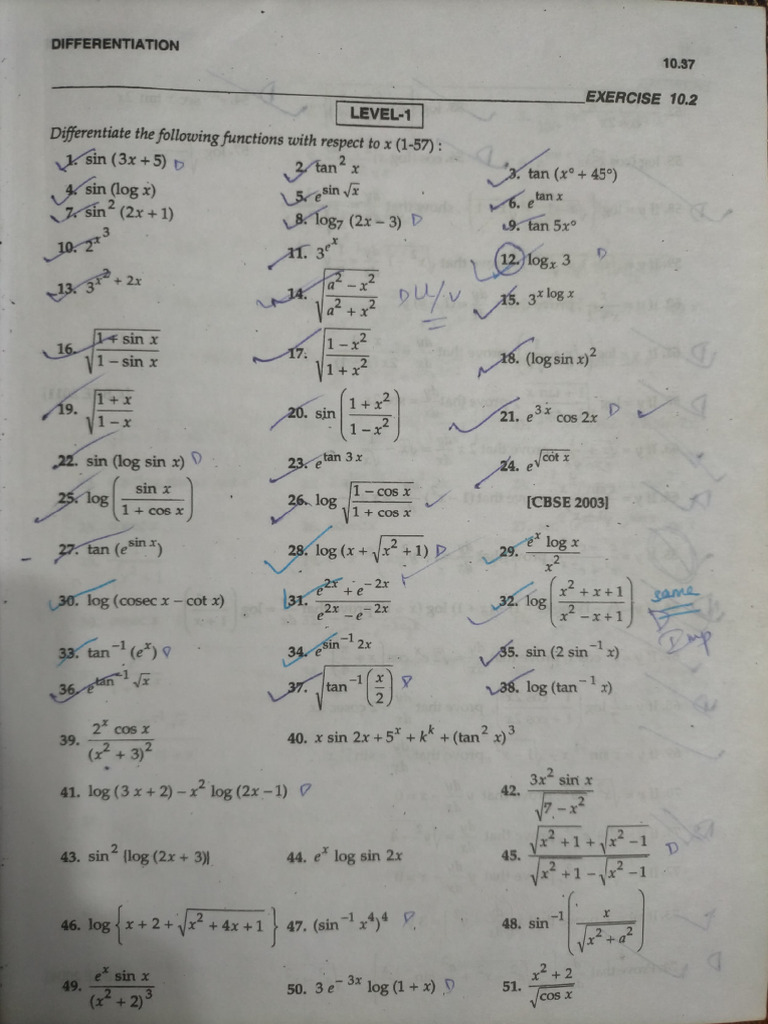 DIFFERENTIATION
10.37
EXERCISE 10.2
LEVEL-1
Differentiate the following functions with respect to x (1-57) :
1. sin (3x + 5) D 2. tan² x 3. tan (x° + 45°)
4. sin (log x) 5. e^(sin √x) 6. e^(tan x)
7. sin² (2x + 1) 8. log₇ (2x − 3) D 9. tan 5x°
10. 2^(x³) 11. 3^(e^x) 12. logₓ 3 D
13. 3^(x² + 2x) 14. √((a² − x²)/(a² + x²)) D U/V 15. 3^(x log x)
16. √((1 + sin x)/(1 − sin x)) 17. √((1 − x²)/(1 + x²)) 18. (log sin x)²
19. √((1 + x)/(1 − x)) 20. sin ((1 + x²)/(1 − x²)) 21. e^(3x) cos 2x D
22. sin (log sin x) D 23. e^(tan 3x) 24. e^(√(cot x))
25. log (sin x/(1 + cos x)) 26. log √((1 − cos x)/(1 + cos x)) [CBSE 2003]
27. tan (e^(sin x)) 28. log (x + √(x² + 1)) D 29. (e^x log x)/x²
30. log (cosec x − cot x) 31. (e^(2x) + e^(−2x))/(e^(2x) − e^(−2x)) 32. log ((x² + x + 1)/(x² − x + 1)) same
33. tan⁻¹ (e^x) D 34. e^(sin⁻¹ 2x) 35. sin (2 sin⁻¹ x)
36. e^(tan⁻¹ √x) 37. √(tan⁻¹ (x/2)) D 38. log (tan⁻¹ x)
39. (2^x cos x)/(x² + 3)² 40. x sin 2x + 5^x + k^k + (tan² x)³
41. log (3x + 2) − x² log (2x − 1) D 42. (3x² sin x)/√(7 − x²)
43. sin² {log (2x + 3)} 44. e^x log sin 2x 45. (√(x² + 1) + √(x² − 1))/(√(x² + 1) − √(x² − 1)) D
46. log {x + 2 + √(x² + 4x + 1)} 47. (sin⁻¹ x⁴)⁴ D 48. sin⁻¹ (x/√(x² + a²))
49. (e^x sin x)/(x² + 2)³ 50. 3 e^(−3x) log (1 + x) D 51. (x² + 2)/√(cos x)